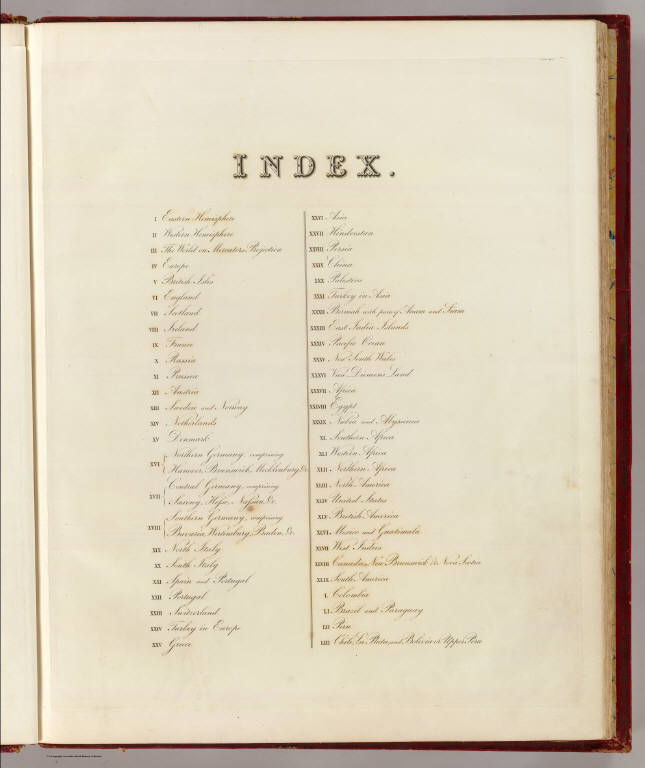 INDEX.
I Eastern Hemisphere
II Western Hemisphere
III The World on Mercators Projection
IV Europe
V British Isles
VI England
VII Scotland
VIII Ireland
IX France
X Russia
XI Prussia
XII Austria
XIII Sweden and Norway
XIV Netherlands
XV Denmark
XVI Northern Germany, comprising
Hanover, Brunswick, Mecklenburg &c
XVII Central Germany, comprising
Saxony, Hesse, Nassau &c.
XVIII Southern Germany, comprising
Bavaria, Wirtemburg, Baden, &c.
XIX North Italy
XX South Italy
XXI Spain and Portugal
XXII Portugal
XXIII Switzerland
XXIV Turkey in Europe
XXV Greece
XXVI Asia
XXVII Hindoostan
XXVIII Persia
XXIX China
XXX Palestine
XXXI Turkey in Asia
XXXII Birmah with part of Anam and Siam
XXXIII East India Islands
XXXIV Pacific Ocean
XXXV New South Wales
XXXVI Van Diemens Land
XXXVII Africa
XXXVIII Egypt
XXXIX Nubia and Abyssinia
XL Southern Africa
XLI Western Africa
XLII Northern Africa
XLIII North America
XLIV United States
XLV British America
XLVI Mexico and Guatemala
XLVII West Indies
XLVIII Canada, New Brunswick & Nova Scotia
XLIX South America
L Colombia
LI Brazil and Paraguay
LII Peru
LIII Chili, La Plata, and Bolivia or Upper Peru